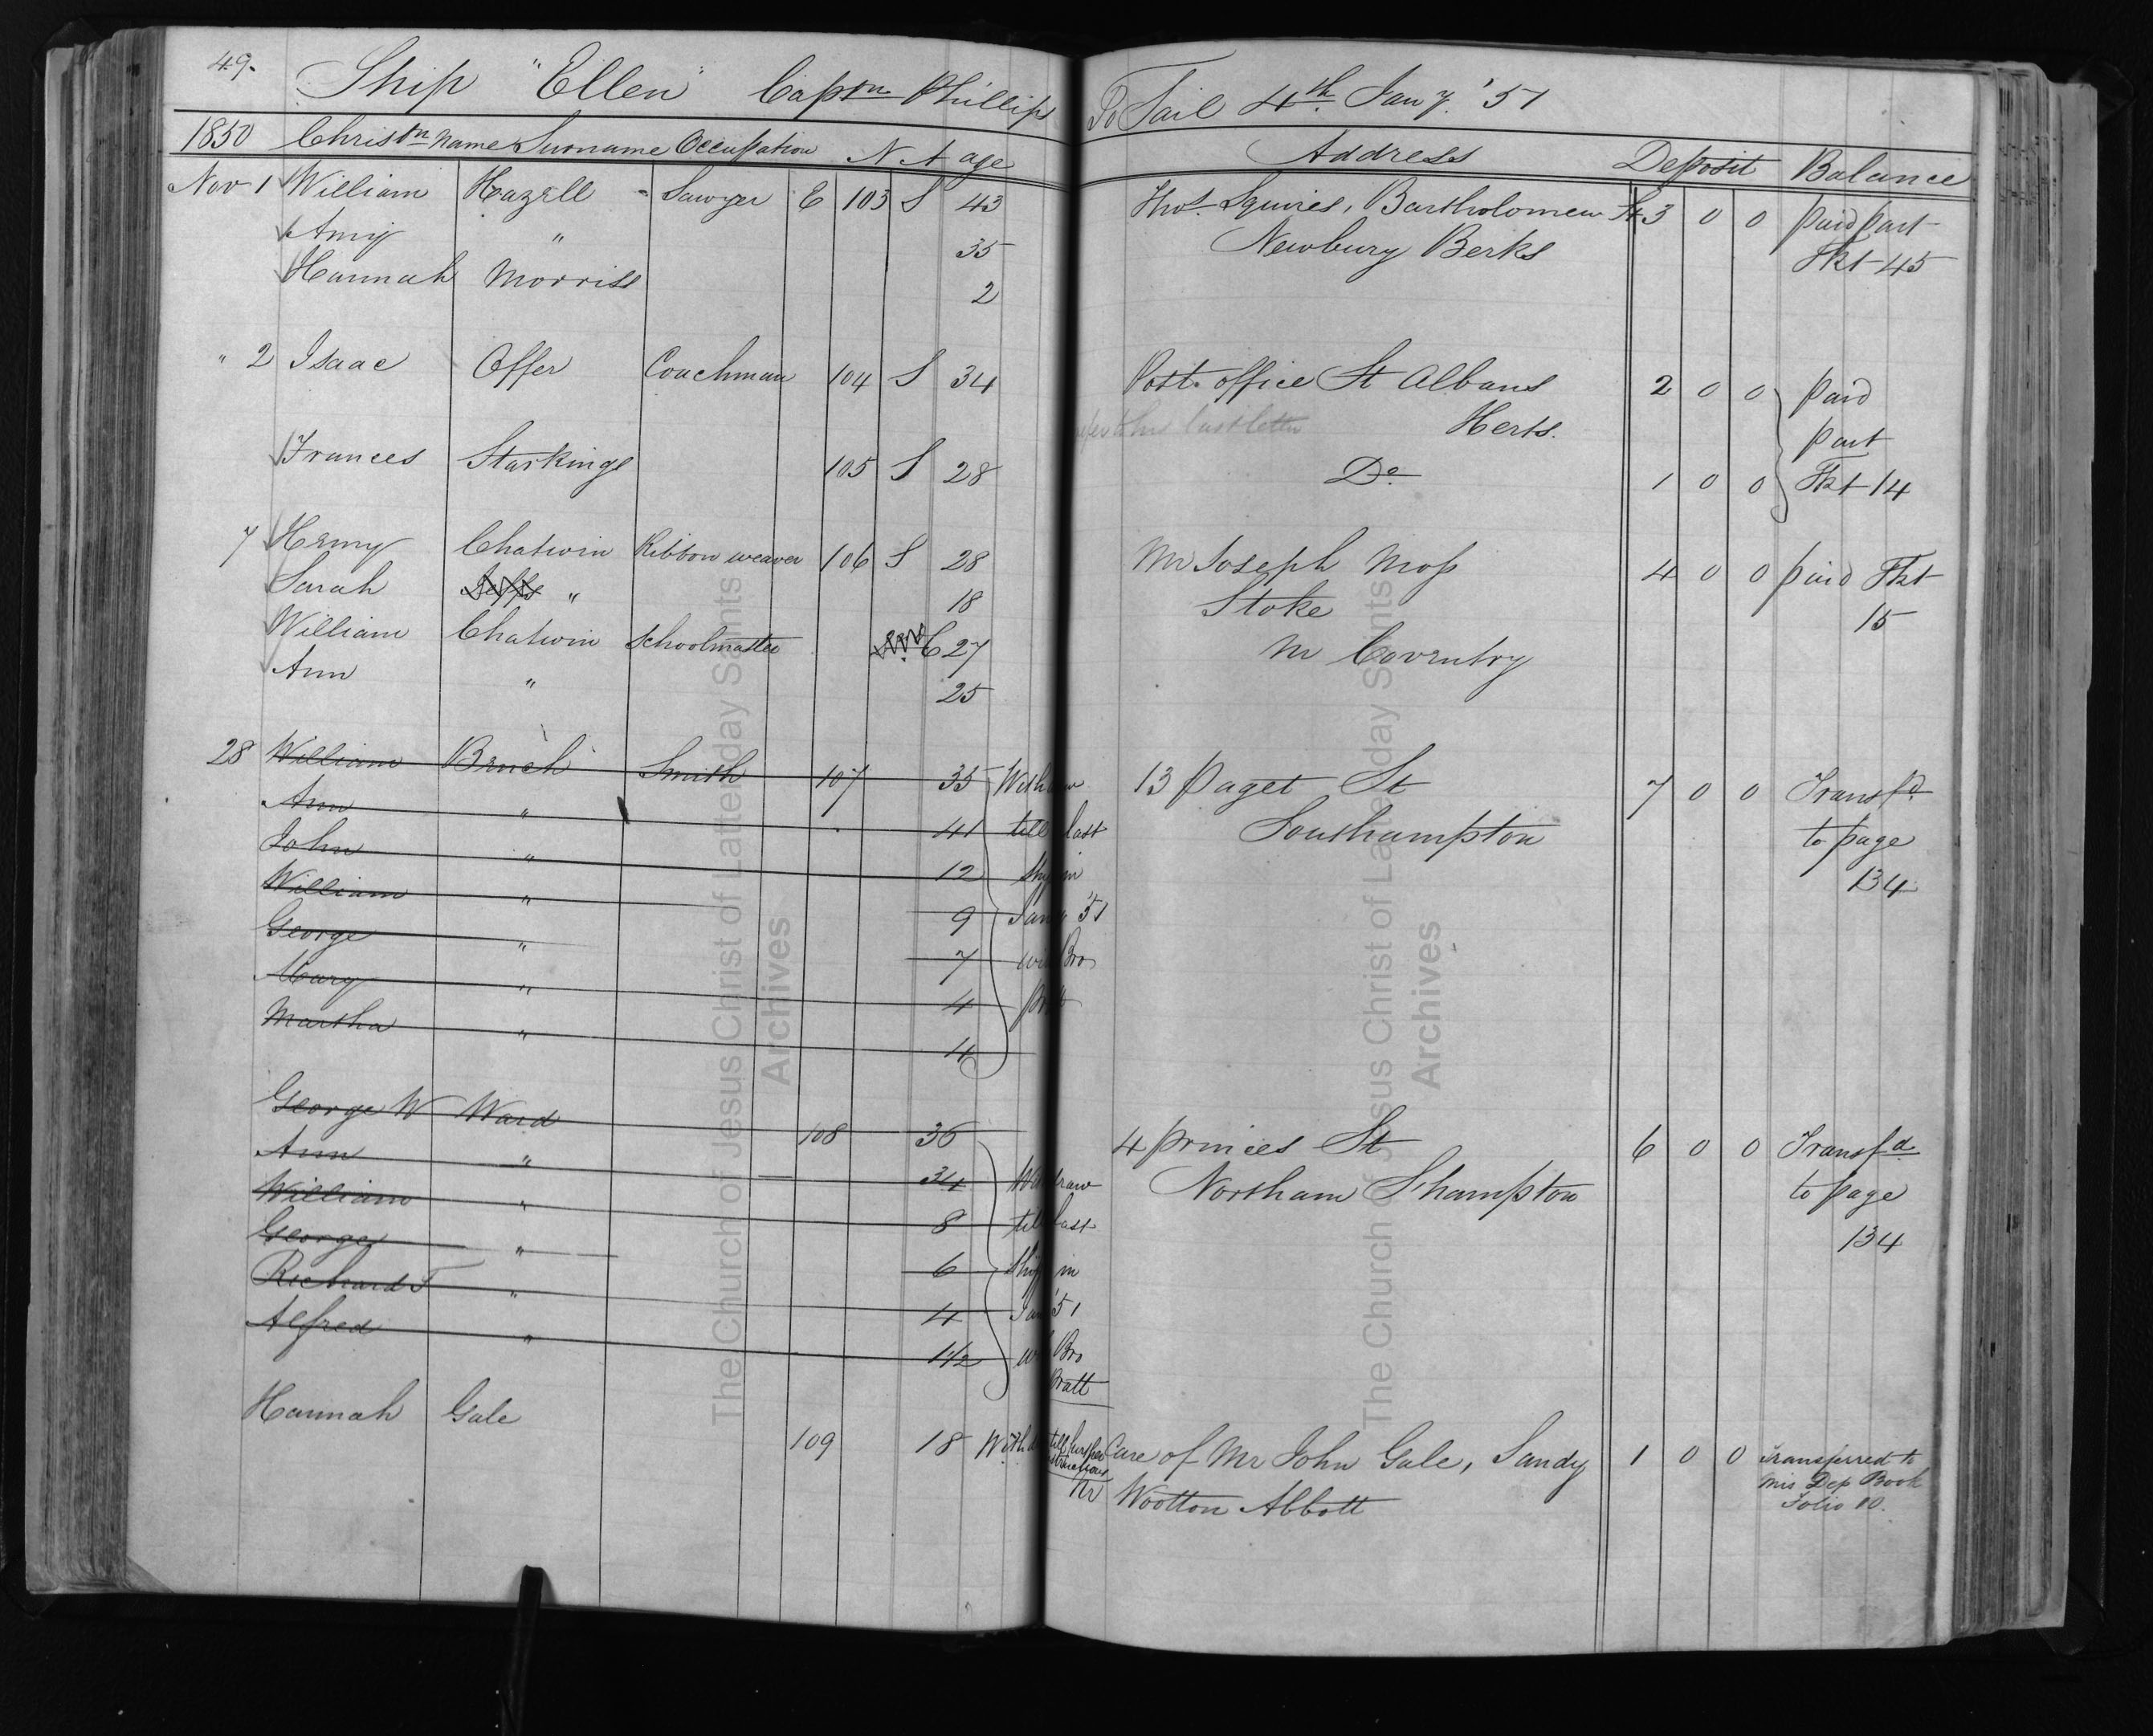 49.
Ship "Ellen" Captn Phillips To Sail 4th Jany. '51
1850 Christn Name Surname Occupation N A age Address Deposit Balance
Nov 1 William Hazell Sawyer E 103 S 43 Thos. Squires, Bartholomew St 3 0 0 paid part
Amy " 35 Newbury Berks Tkt 45
Hannah Morriss 2
" 2 Isaac Offer Coachman 104 S 34 Post office St Albans 2 0 0 paid
last letter Herts. part
Frances Starkings 105 S 28 Do 1 0 0 Tkt 14
7 Henry Chatwin Ribbon weaver 106 S 28 Mr Joseph Moss 4 0 0 paid Tkt
Sarah " 18 Stoke 15
William Chatwin Schoolmaster C 27 Nr Coventry
Ann " 25
28 William Bench Smith 107 35 Withdraw 13 Paget St 7 0 0 Transfd
Ann " 41 till last Southampton to page
John " 12 ship in 134
William " 9 Jany '51
George " 7 with Bro
Mary " 4 Pratt
Martha " 4
George W Ward 108 36 4 Princes St 6 0 0 Transfd
Ann " 34 Withdraw Northam S'hampton to page
William " 8 till last 134
George " 6 ship in
Richard T " 4 Jan '51
Alfred " 1 1/2 with Bro
Pratt
Hannah Gale 109 18 With till further Care of Mr John Gale, Sandy 1 0 0 Transferred to
instructions Mis Dep Book
Nr Wootton Abbott Folio 10.
The Church of Jesus Christ of Latter-day Saints
Archives
The Church of Jesus Christ of Latter-day Saints
Archives